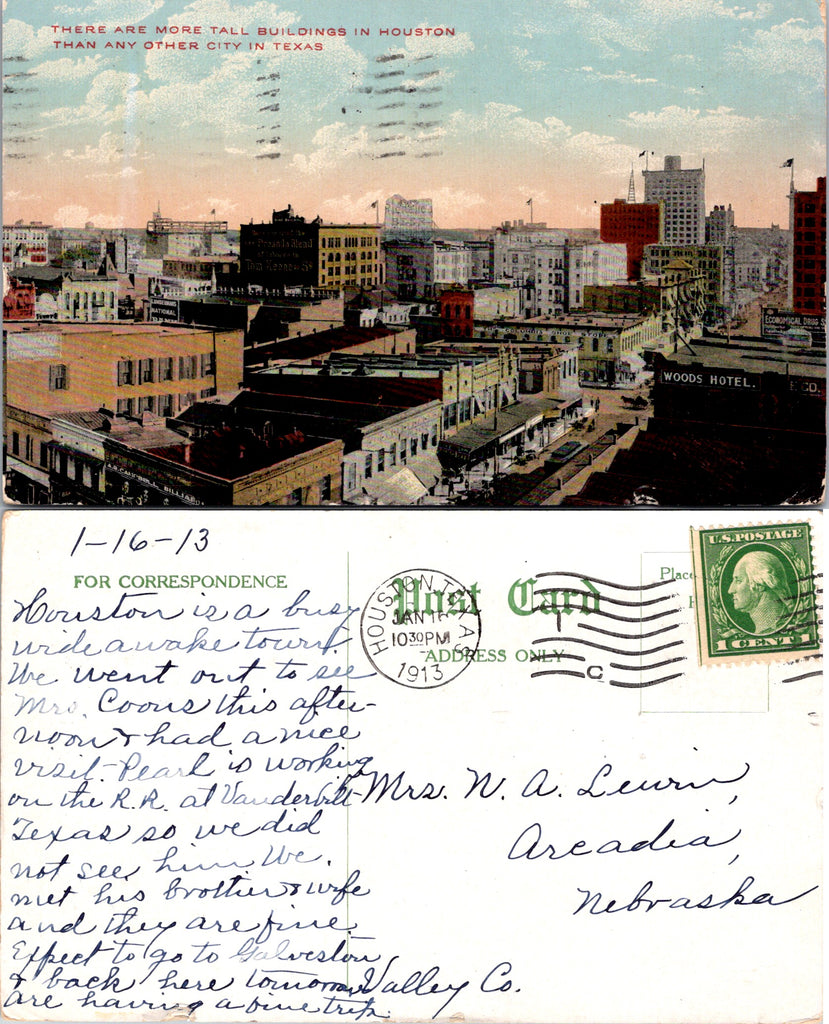 THERE ARE MORE TALL BUILDINGS IN HOUSTON
THAN ANY OTHER CITY IN TEXAS
NATIONAL
ECONOMICAL DRUG S
WOODS HOTEL.
& CO.
BILLIARD
1-16-13
FOR CORRESPONDENCE
Houston is a busy
wide awake town.
We went out to see
Mrs. Coons this after-
noon & had a nice
visit. Pearl is working
on the R.R. at Vanderbilt
Texas so we did
not see him. We
met his brother & wife
and they are fine.
Expect to go to Galveston
& back here tomorrow
are having a fine trip.
Post Card
ADDRESS ONLY
HOUSTON TEXAS
JAN 16
1030 PM
1913
C
Place
U.S. POSTAGE
1 CENT 1
Mrs. W. A. Lewin,
Arcadia,
Nebraska
Valley Co.